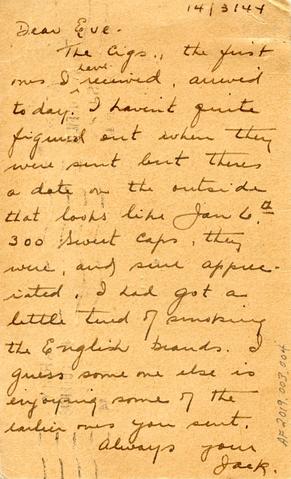 14/3/44
Dear Eve.
The Cigs., the first
have
ones I received, arrived
today. I haven't quite
figured out when they
were sent but theres
a date on the outside
that looks like Jan 6th.
300 Sweet Caps, they
were, and sure appre-
ciated. I had got a
little tired of smoking
the English brands. I
guess some one else is
enjoying some of the
earlier ones you sent.
Always your
Jack.
AF2019.003.004